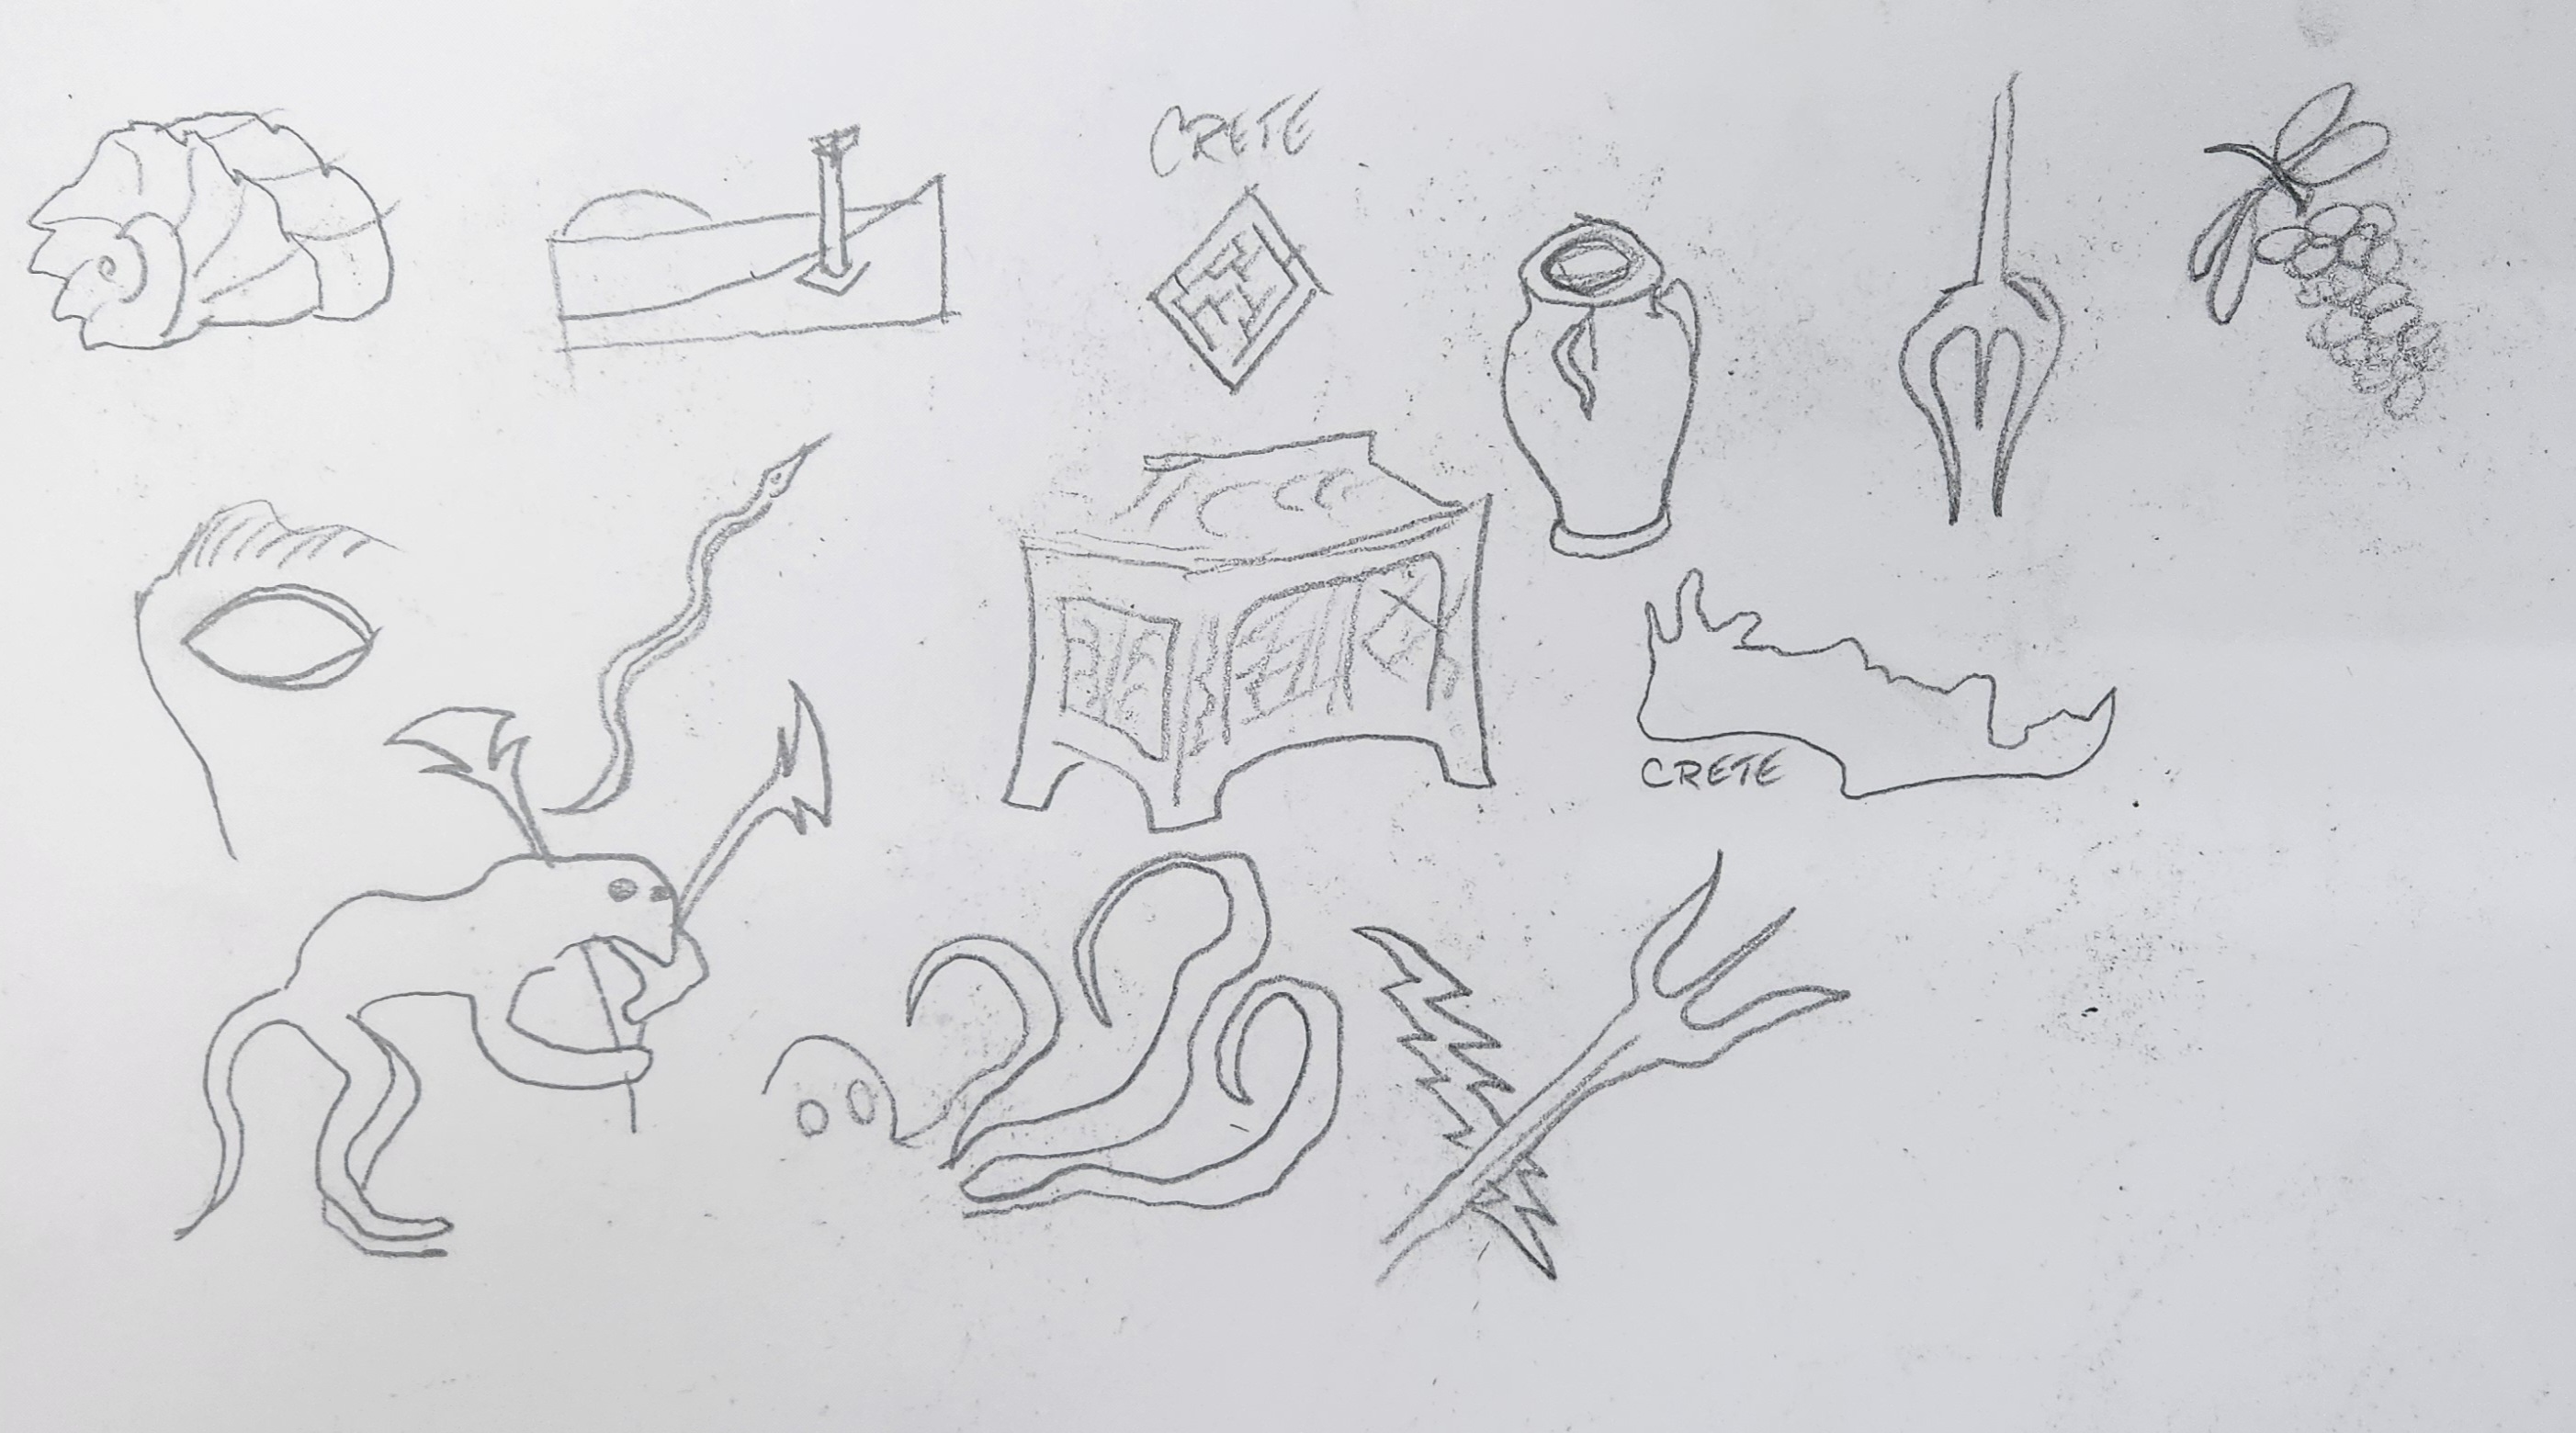 CRETE
CRETE